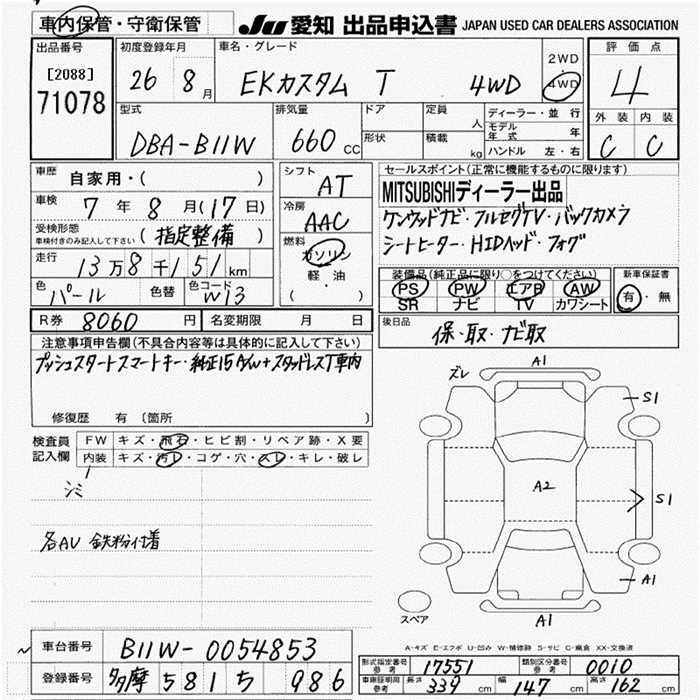 車内保管・守衛保管 JU 愛知 出品申込書 JAPAN USED CAR DEALERS ASSOCIATION
出品番号 初度登録年月 車名・グレード 2WD 評価点
[2088] 26 8月 EKカスタム T 4WD 4WD 4
71078
型式 排気量 ドア 定員 人 ディーラー・並行 外装 内装
DBA-B11W 660 CC 形状 積載 kg モデル年式 年 C C
ハンドル 左・右
車歴 自家用・( ) シフト AT セールスポイント(正常に機能するものに限ります)
車検 7年 8月(17日) 冷房 AAC MITSUBISHIディーラー出品
受検形態 車検付きのみ記入して下さい (指定整備) 燃料 ガソリン 軽・油 ( )
ケンウッドナビ・フルセグTV・バックカメラ
シートヒーター・HIDヘッド・フォグ
走行 13万8千151km
装備品(純正品に限り○をつけてください) 新車保証書
色 パール 色替 色コード W13 PS PW エアB AW 有・無
SR ナビ TV カワシート
R券 8060円 名変期限 月 日 後日品 保・取・ナビ取
注意事項申告欄(不具合内容等は具体的に記入して下さい)
プッシュスタートスマートキー・純正15A/W+スタッドレスT車内
修復歴 有 (箇所 )
検査員記入欄 FW キズ・飛石・ヒビ割・リペア跡・X要
内装 キズ・汚レ・コゲ・穴・スレ・キレ・破レ
シミ
各AU 鉄粉付着
ズレ A1
S1
A2 S1
A1
スペア A1
A-キズ E-エクボ U-凹み W-補修跡 S-サビ C-腐食 XX-交換済
車台番号 B11W-0054853
登録番号 多摩 581 ち 986
形式指定番号 参考 17551 類別区分番号 参考 0010
車庫証明用 参考 長さ 339cm 幅 147cm 高さ 162cm